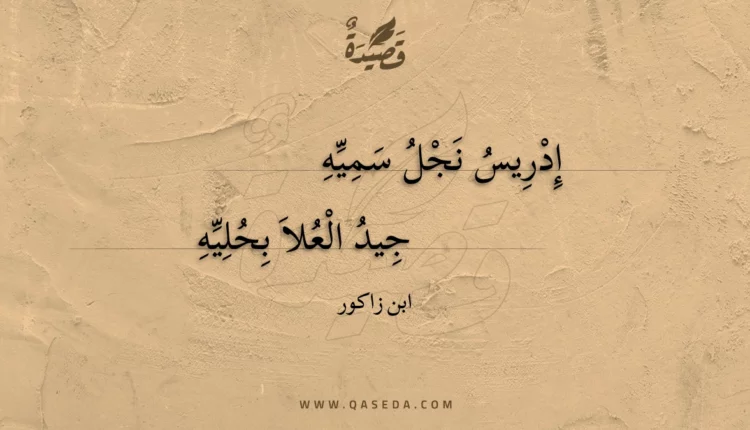 قَصِيدَةٌ
إِدْرِيسُ نَجْلُ سَمِيِّهِ
جِيدُ الْعُلاَ بِحُلِيِّهِ
ابن زاكور
WWW.QASEDA.COM